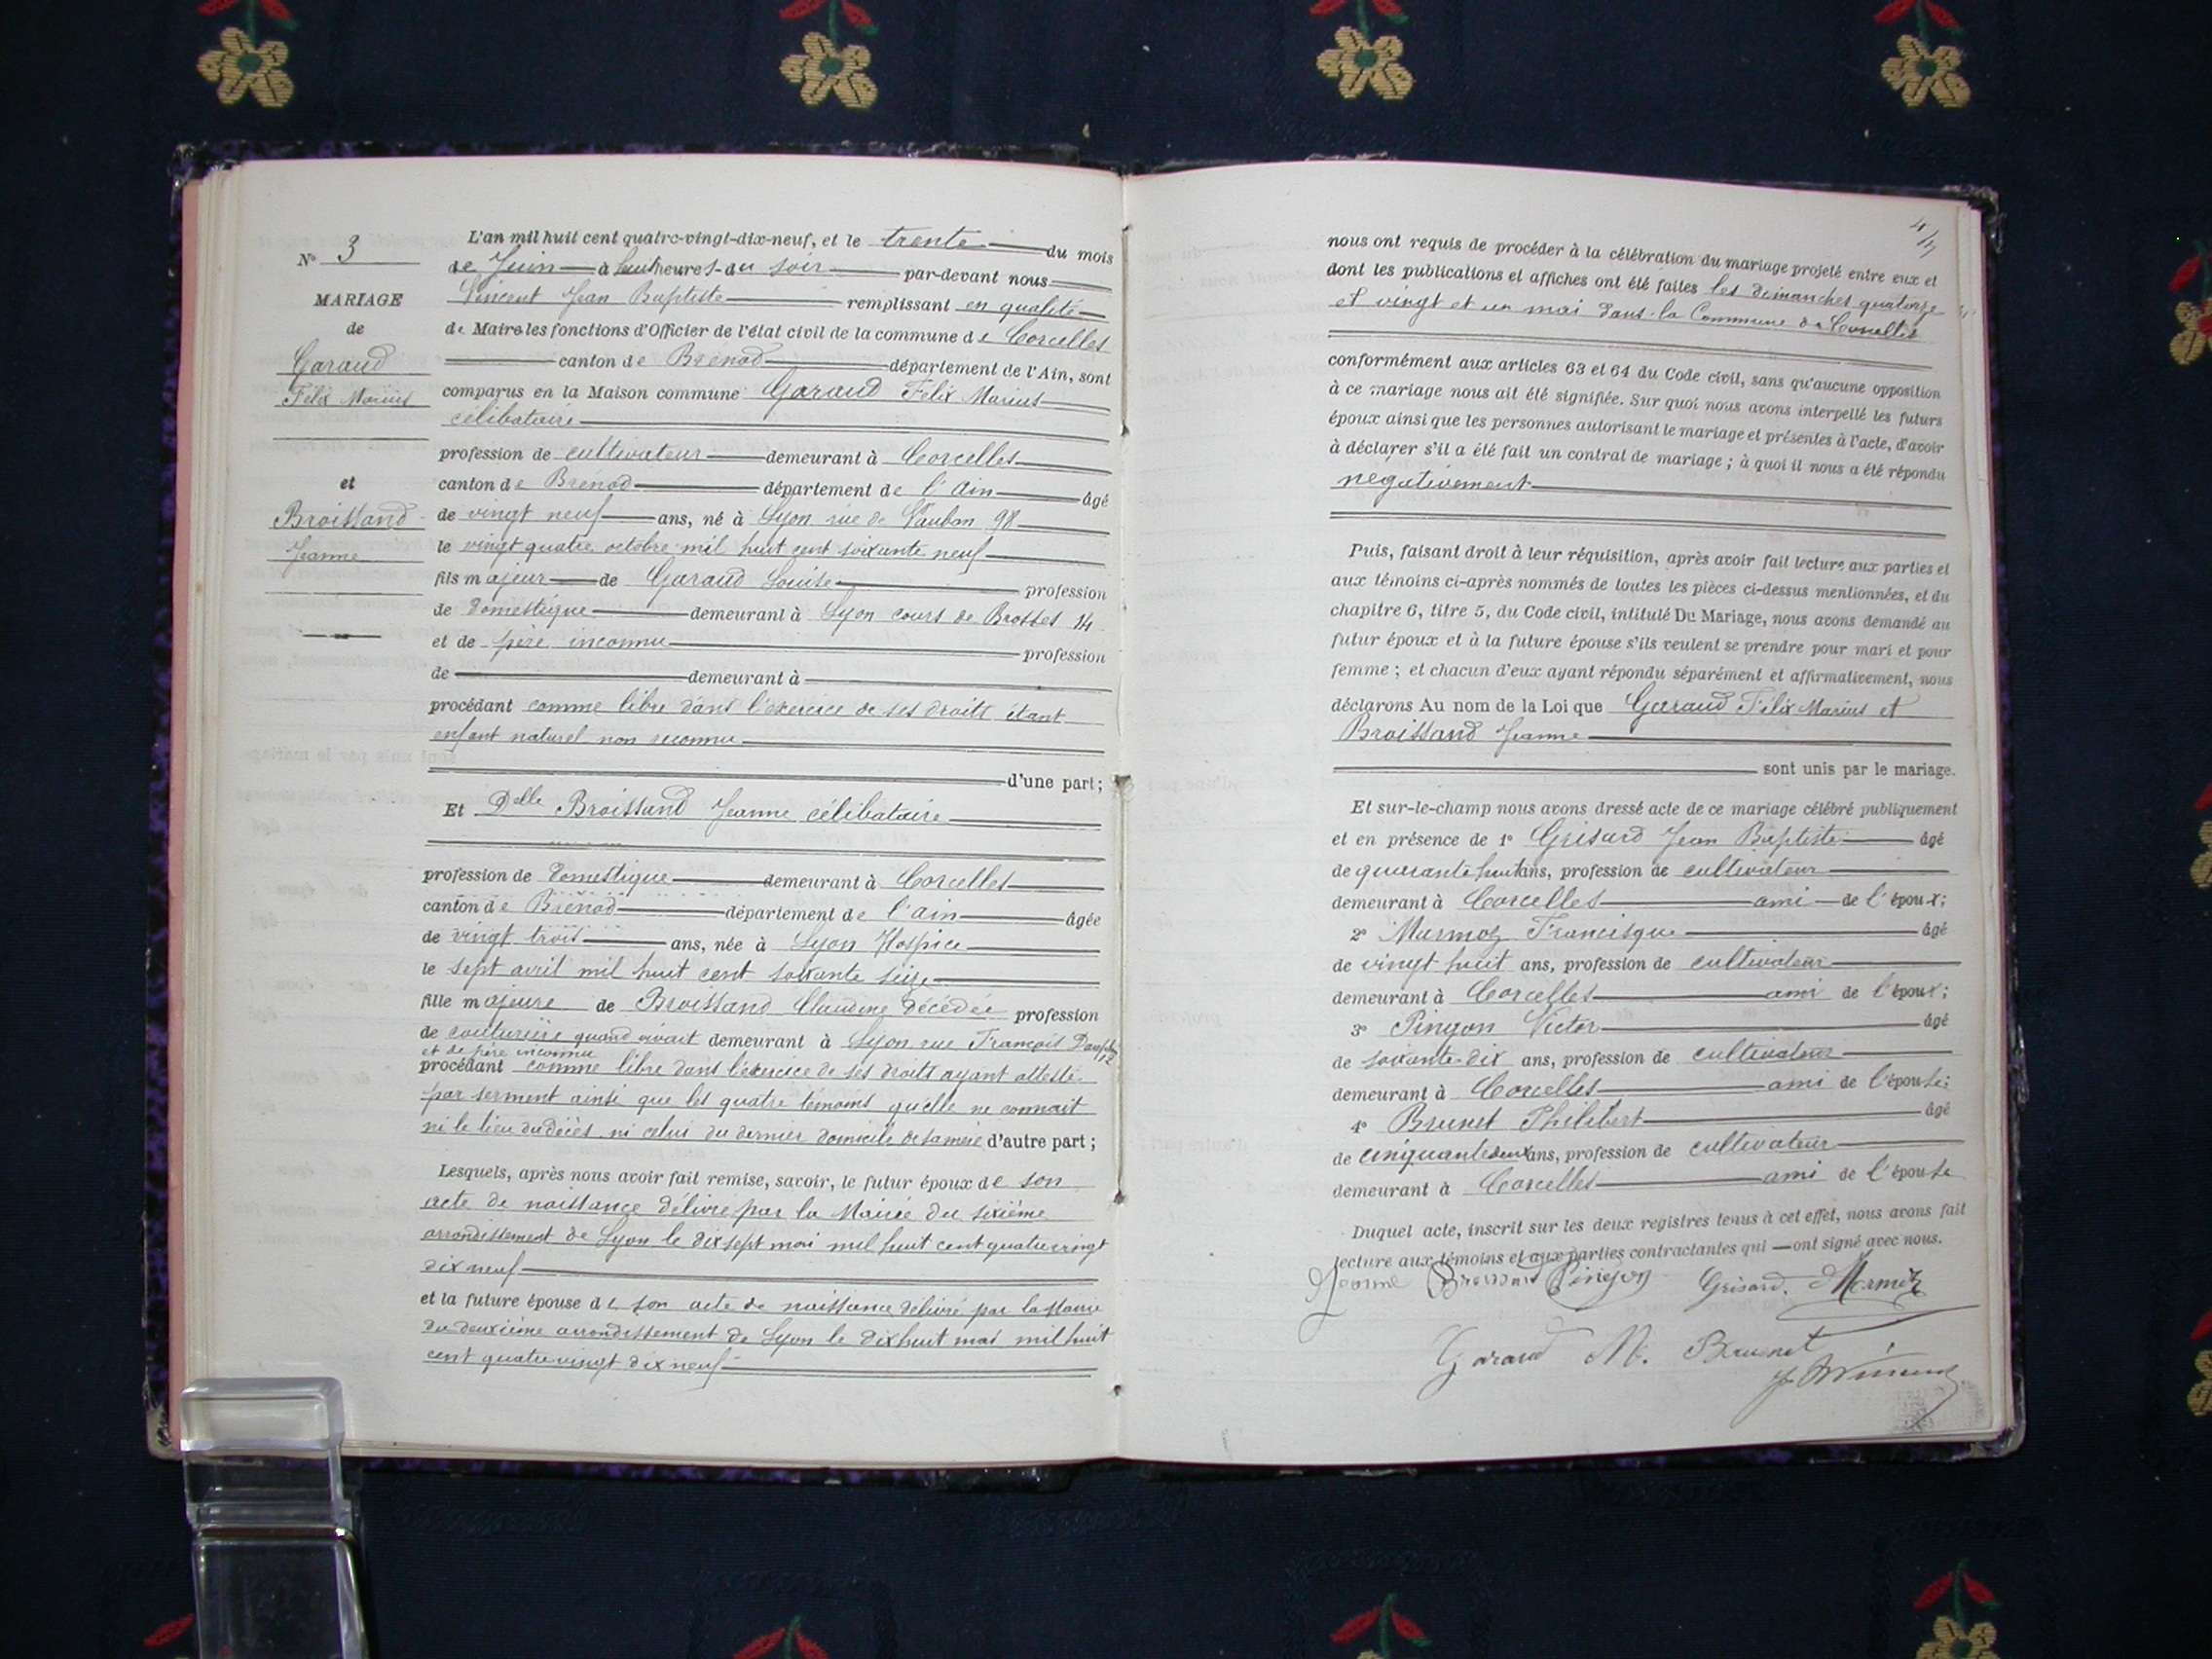 N° 3
MARIAGE
de
Garaud
Félix Marius
et
Broissand
Jeanne
L'an mil huit cent quatre-vingt-dix-neuf, et le trente du mois
de Juin à huit heures du soir par-devant nous
Vincent Jean Baptiste remplissant en qualité
de Maire les fonctions d'Officier de l'état civil de la commune de Corcelles
canton de Brénod département de l'Ain, sont
comparus en la Maison commune Garaud Félix Marius
célibataire
profession de cultivateur demeurant à Corcelles
canton de Brénod département de l'Ain âgé
de vingt neuf ans, né à Lyon rue de Vauban 98
le vingt quatre octobre mil huit cent soixante neuf
fils majeur de Garaud Louise profession
de domestique demeurant à Lyon cours de Brosses 14
et de père inconnu profession
de demeurant à
procédant comme libre dans l'exercice de ses droits étant
enfant naturel non reconnu
d'une part;
Et Delle Broissand Jeanne célibataire
profession de domestique demeurant à Corcelles
canton de Brénod département de l'Ain âgée
de vingt trois ans, née à Lyon Hospice
le sept avril mil huit cent soixante seize
fille majeure de Broissand Claudine décédée profession
de couturière quand vivait demeurant à Lyon rue François Dauphin 12
et de père inconnu
procédant comme libre dans l'exercice de ses droits ayant attesté
par serment ainsi que les quatre témoins qu'elle ne connait
ni le lieu du décès ni celui du dernier domicile de sa mère d'autre part;
Lesquels, après nous avoir fait remise, savoir, le futur époux de son
acte de naissance délivré par la Mairie du sixième
arrondissement de Lyon le dix sept mai mil huit cent quatre vingt
dix neuf
et la future épouse de son acte de naissance délivré par la Mairie
du deuxième arrondissement de Lyon le dix huit mai mil huit
cent quatre vingt dix neuf
nous ont requis de procéder à la célébration du mariage projeté entre eux et
dont les publications et affiches ont été faites les dimanches quatorze
et vingt et un mai dans la Commune de Corcelles
conformément aux articles 63 et 64 du Code civil, sans qu'aucune opposition
à ce mariage nous ait été signifiée. Sur quoi nous avons interpellé les futurs
époux ainsi que les personnes autorisant le mariage et présentes à l'acte, d'avoir
à déclarer s'il a été fait un contrat de mariage; à quoi il nous a été répondu
negativement
Puis, faisant droit à leur réquisition, après avoir fait lecture aux parties et
aux témoins ci-après nommés de toutes les pièces ci-dessus mentionnées, et du
chapitre 6, titre 5, du Code civil, intitulé Du Mariage, nous avons demandé au
futur époux et à la future épouse s'ils veulent se prendre pour mari et pour
femme; et chacun d'eux ayant répondu séparément et affirmativement, nous
déclarons Au nom de la Loi que Garaud Félix Marius et
Broissand Jeanne
sont unis par le mariage.
Et sur-le-champ nous avons dressé acte de ce mariage célébré publiquement
et en présence de 1° Grisard Jean Baptiste âgé
de quarante huit ans, profession de cultivateur
demeurant à Corcelles ami de l'époux;
2° Marmoz Francisque âgé
de vingt huit ans, profession de cultivateur
demeurant à Corcelles ami de l'époux;
3° Pingon Victor âgé
de soixante-dix ans, profession de cultivateur
demeurant à Corcelles ami de l'épouse;
4° Brunet Philibert âgé
de cinquante deux ans, profession de cultivateur
demeurant à Corcelles ami de l'épouse
Duquel acte, inscrit sur les deux registres tenus à cet effet, nous avons fait
lecture aux témoins et aux parties contractantes qui ont signé avec nous.
Jeanne Broissand Pingon Grisard. Marmoz
Garaud M. Brunet
J. Vincent